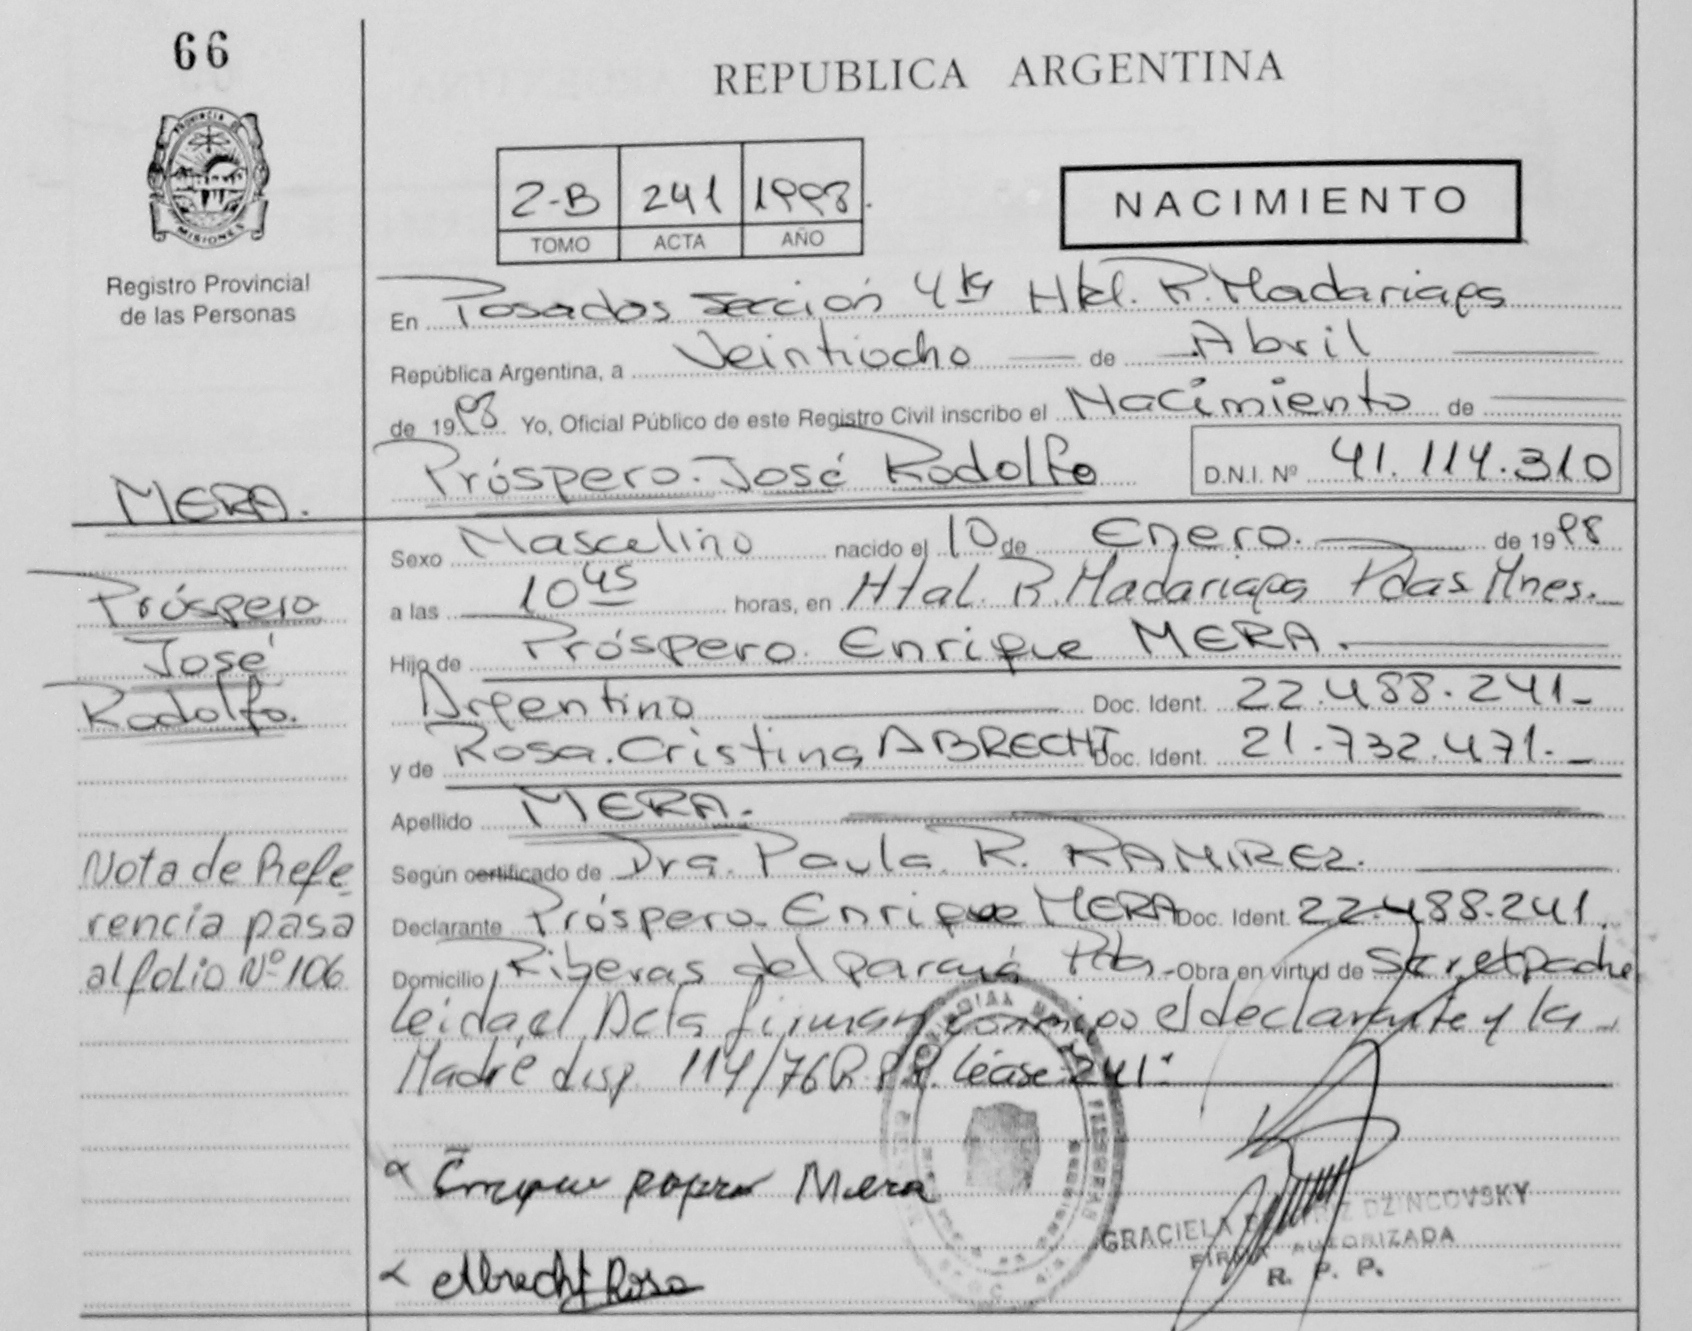 66
PROVINCIA DE
MISIONES
Registro Provincial
de las Personas
REPUBLICA ARGENTINA
2-B 241 1998.
TOMO ACTA AÑO
NACIMIENTO
En Posadas Sección 4ta Htal. R. Madariaga
República Argentina, a Veintiocho de Abril
de 1998 Yo, Oficial Público de este Registro Civil inscribo el Nacimiento de
Próspero José Rodolfo D.N.I. Nº 41.114.310
MERA.
Sexo Masculino nacido el 10 de Enero. de 1998
a las 10 45 horas, en Htal. R. Madariaga Pdas Mnes.
Próspero
José
Rodolfo.
Hijo de Próspero Enrique MERA.
Argentino Doc. Ident. 22.488.241-
y de Rosa Cristina ABRECHT Doc. Ident. 21.732.471.-
Apellido MERA.
Según certificado de Dra. Paula R. RAMIREZ.
Declarante Próspero Enrique MERA Doc. Ident. 22.488.241.
Domicilio Riberas del Paraná Obra en virtud de
Nota de Refe-
rencia pasa
al folio Nº 106
leida el Acta firman conmigo el declarante y la
Madre disp. 114/76 R.P.P. léase: 241:
Mera
Albrecht Rosa
GRACIELA DZINCOVSKY
FIRMA AUTORIZADA
R. P. P.